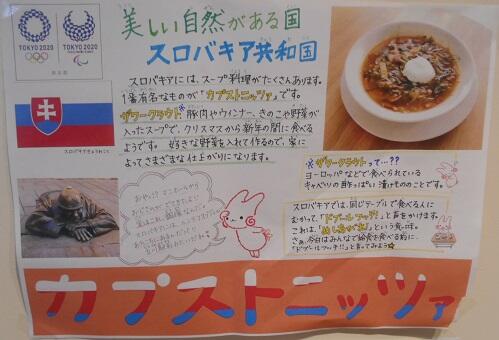 TOKYO 2020
TOKYO 2020
美しい自然がある国
スロバキア共和国
スロバキアには、スープ料理がたくさんあります。
1番有名なものが「カプストニッツァ」です。
ザワークラウト※豚肉やウインナー、きのこや野菜が
入ったスープで、クリスマスから新年の間に食べる
ようです。 好きな野菜を入れて作るので、家に
よってさまざまな仕上がりになります。
スロバキアきょうわこく
おや!? マンホールから
おじさんが
※ザワークラウトって…??
ヨーロッパなどで食べられている
キャベツの酢っぱい漬けもののことです。
スロバキアでは、同じテーブルで食べる人に
むかって、「ドブールフッチ!」と声をかけます。
これは、「めしあがれ」という意味。
さぁ、今日はみんなで給食を食べる前に、
「ドブールフッチ!!」と言ってみよう
カプストニッツァ